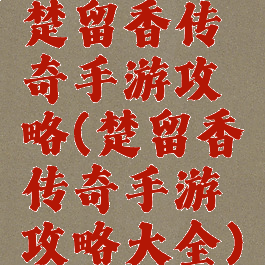 楚留香传
奇手游攻
略(楚留香
传奇手游
攻略大全)